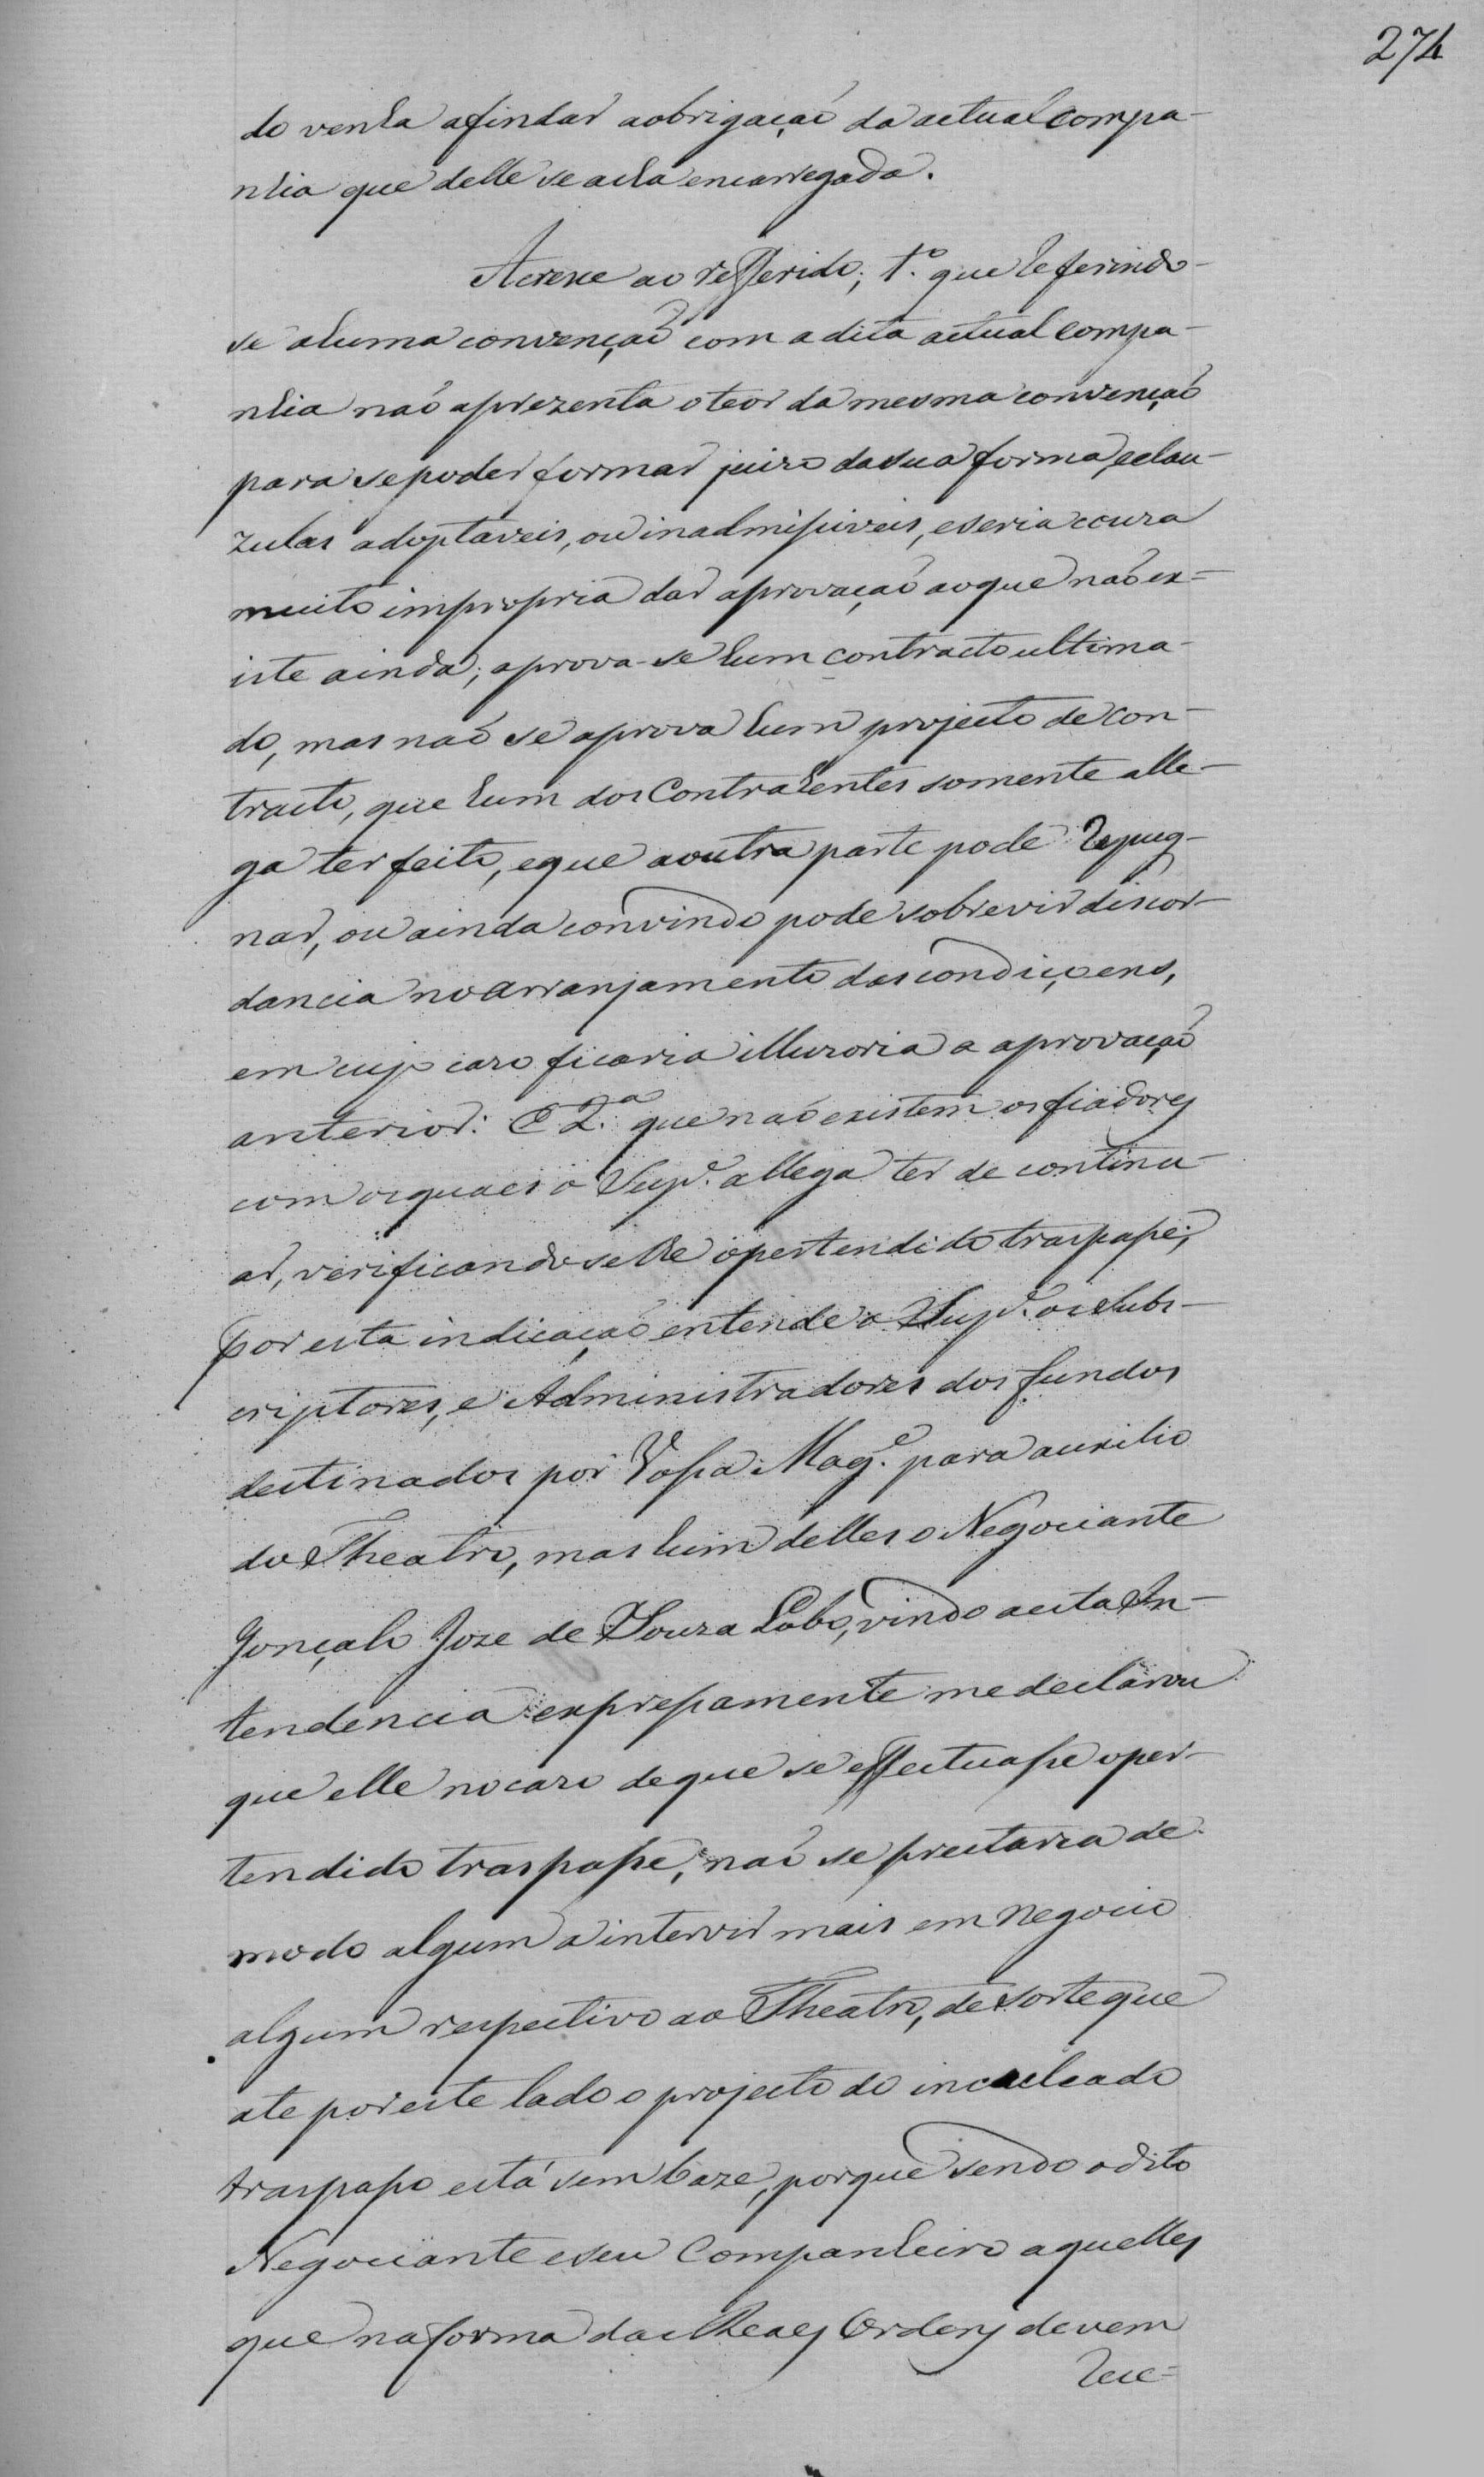 274
do venha afindar aobrigaçaõ da actual compa-
nhia que delle se acha encarregada.
Acresce ao refferido; 1.º que referindo-
se ahuma convençaõ com a dita actual compa-
nhia naõ aprezenta o teor da mesma convençaõ
para sepoder formar juizo dasua forma, eclau-
zulas adoptaveis, ou inadmissiveis, eseria couza
muito impropria dar aprovaçaõ aoque naõ ex=
iste ainda; aprova-se hum contracto ultima-
do, mas naõ se aprova hum projecto de con-
tracto, que hum dos Contrahentes somente alle-
ga ter feito, eque aoutra parte pode repug-
nar, ou ainda convindo pode sobrevir discor-
dancia no arranjamento das condiçoens,
em cujo cazo ficaria illuzoria a aprovaçaõ
anterior: E 2.ª que naõ existem os fiadores
com osquaes o Sup.e allega ter de continu-
ar, verificandoselhe opertendido traspasse;
por esta indicaçaõ entende o Sup.e os Subs-
criptores, e Administradores dos fundos
destinados por Vossa Mag.e para auxilio
do Theatro, mas hum delles o Negociante
Gonçalo Joze de Souza Lobo, vindo aesta In-
tendencia expressamente me declarou
que elle nocazo deque se effectuasse oper-
tendido traspasse, naõ se prestaria de
modo algum a intervir mais em negocio
algum respectivo ao Theatro, de sorte que
ate por este lado o projecto do inculcado
traspasso está sem baze, porque sendo o dito
Negociante eseu Companheiro aquelles
que na forma das Reaes Ordens devem
rece=